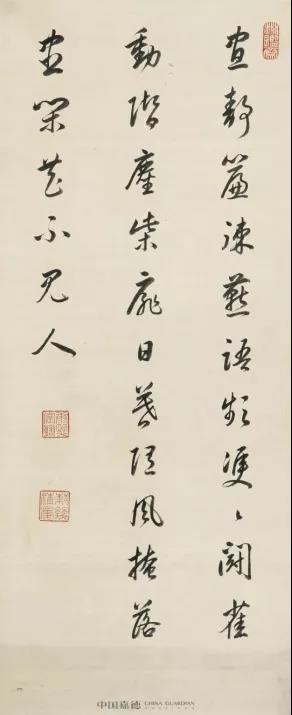 晝靜簾疎燕語頻雙〻鬪雀
動階塵柴扉日暮随風掩落
盡閑花不見人
中国嘉德 CHINA GUARDIAN